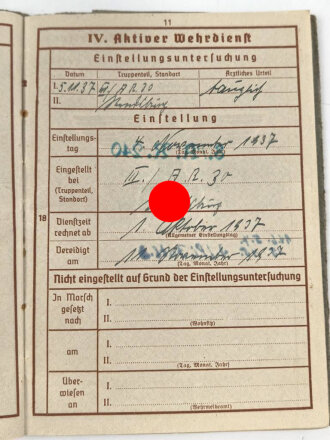 11
IV. Aktiver Wehrdienst
Einstellungsuntersuchung
Datum Truppenteil, Standort Ärztliches Urteil
I. 5.11.37 III/A.R.30 tauglich
II.
Einstellung
Einstellungs-
tag November 1937
(Tag, Monat, Jahr)
Eingestellt
bei III./A.R.30
(Truppenteil,
Standort)
18
Dienstzeit
rechnet ab 1. Oktober 1937
(Allgemeiner Einstellungstag)
Vereidigt
am November 1937
(Tag, Monat, Jahr)
Nicht eingestellt auf Grund der Einstellungsuntersuchung
In Marsch
gesetzt
nach
I.
II.
(Wohnsitz)
am
I.
II.
(Tag, Monat, Jahr)
Über-
wiesen
an
I.
II.
(Wehrmeldeamt)